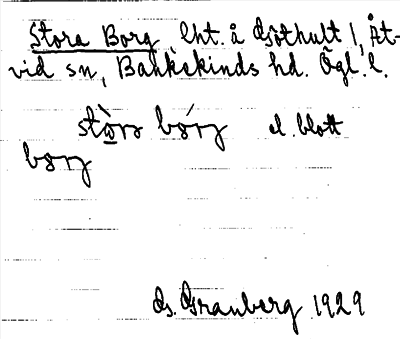 Stora Borg, lht. å Göthult 1, Åt-
vid sn, Bankekinds hd. Ögl. l.
stòra bórg el. blott
borg
G. Granberg 1929